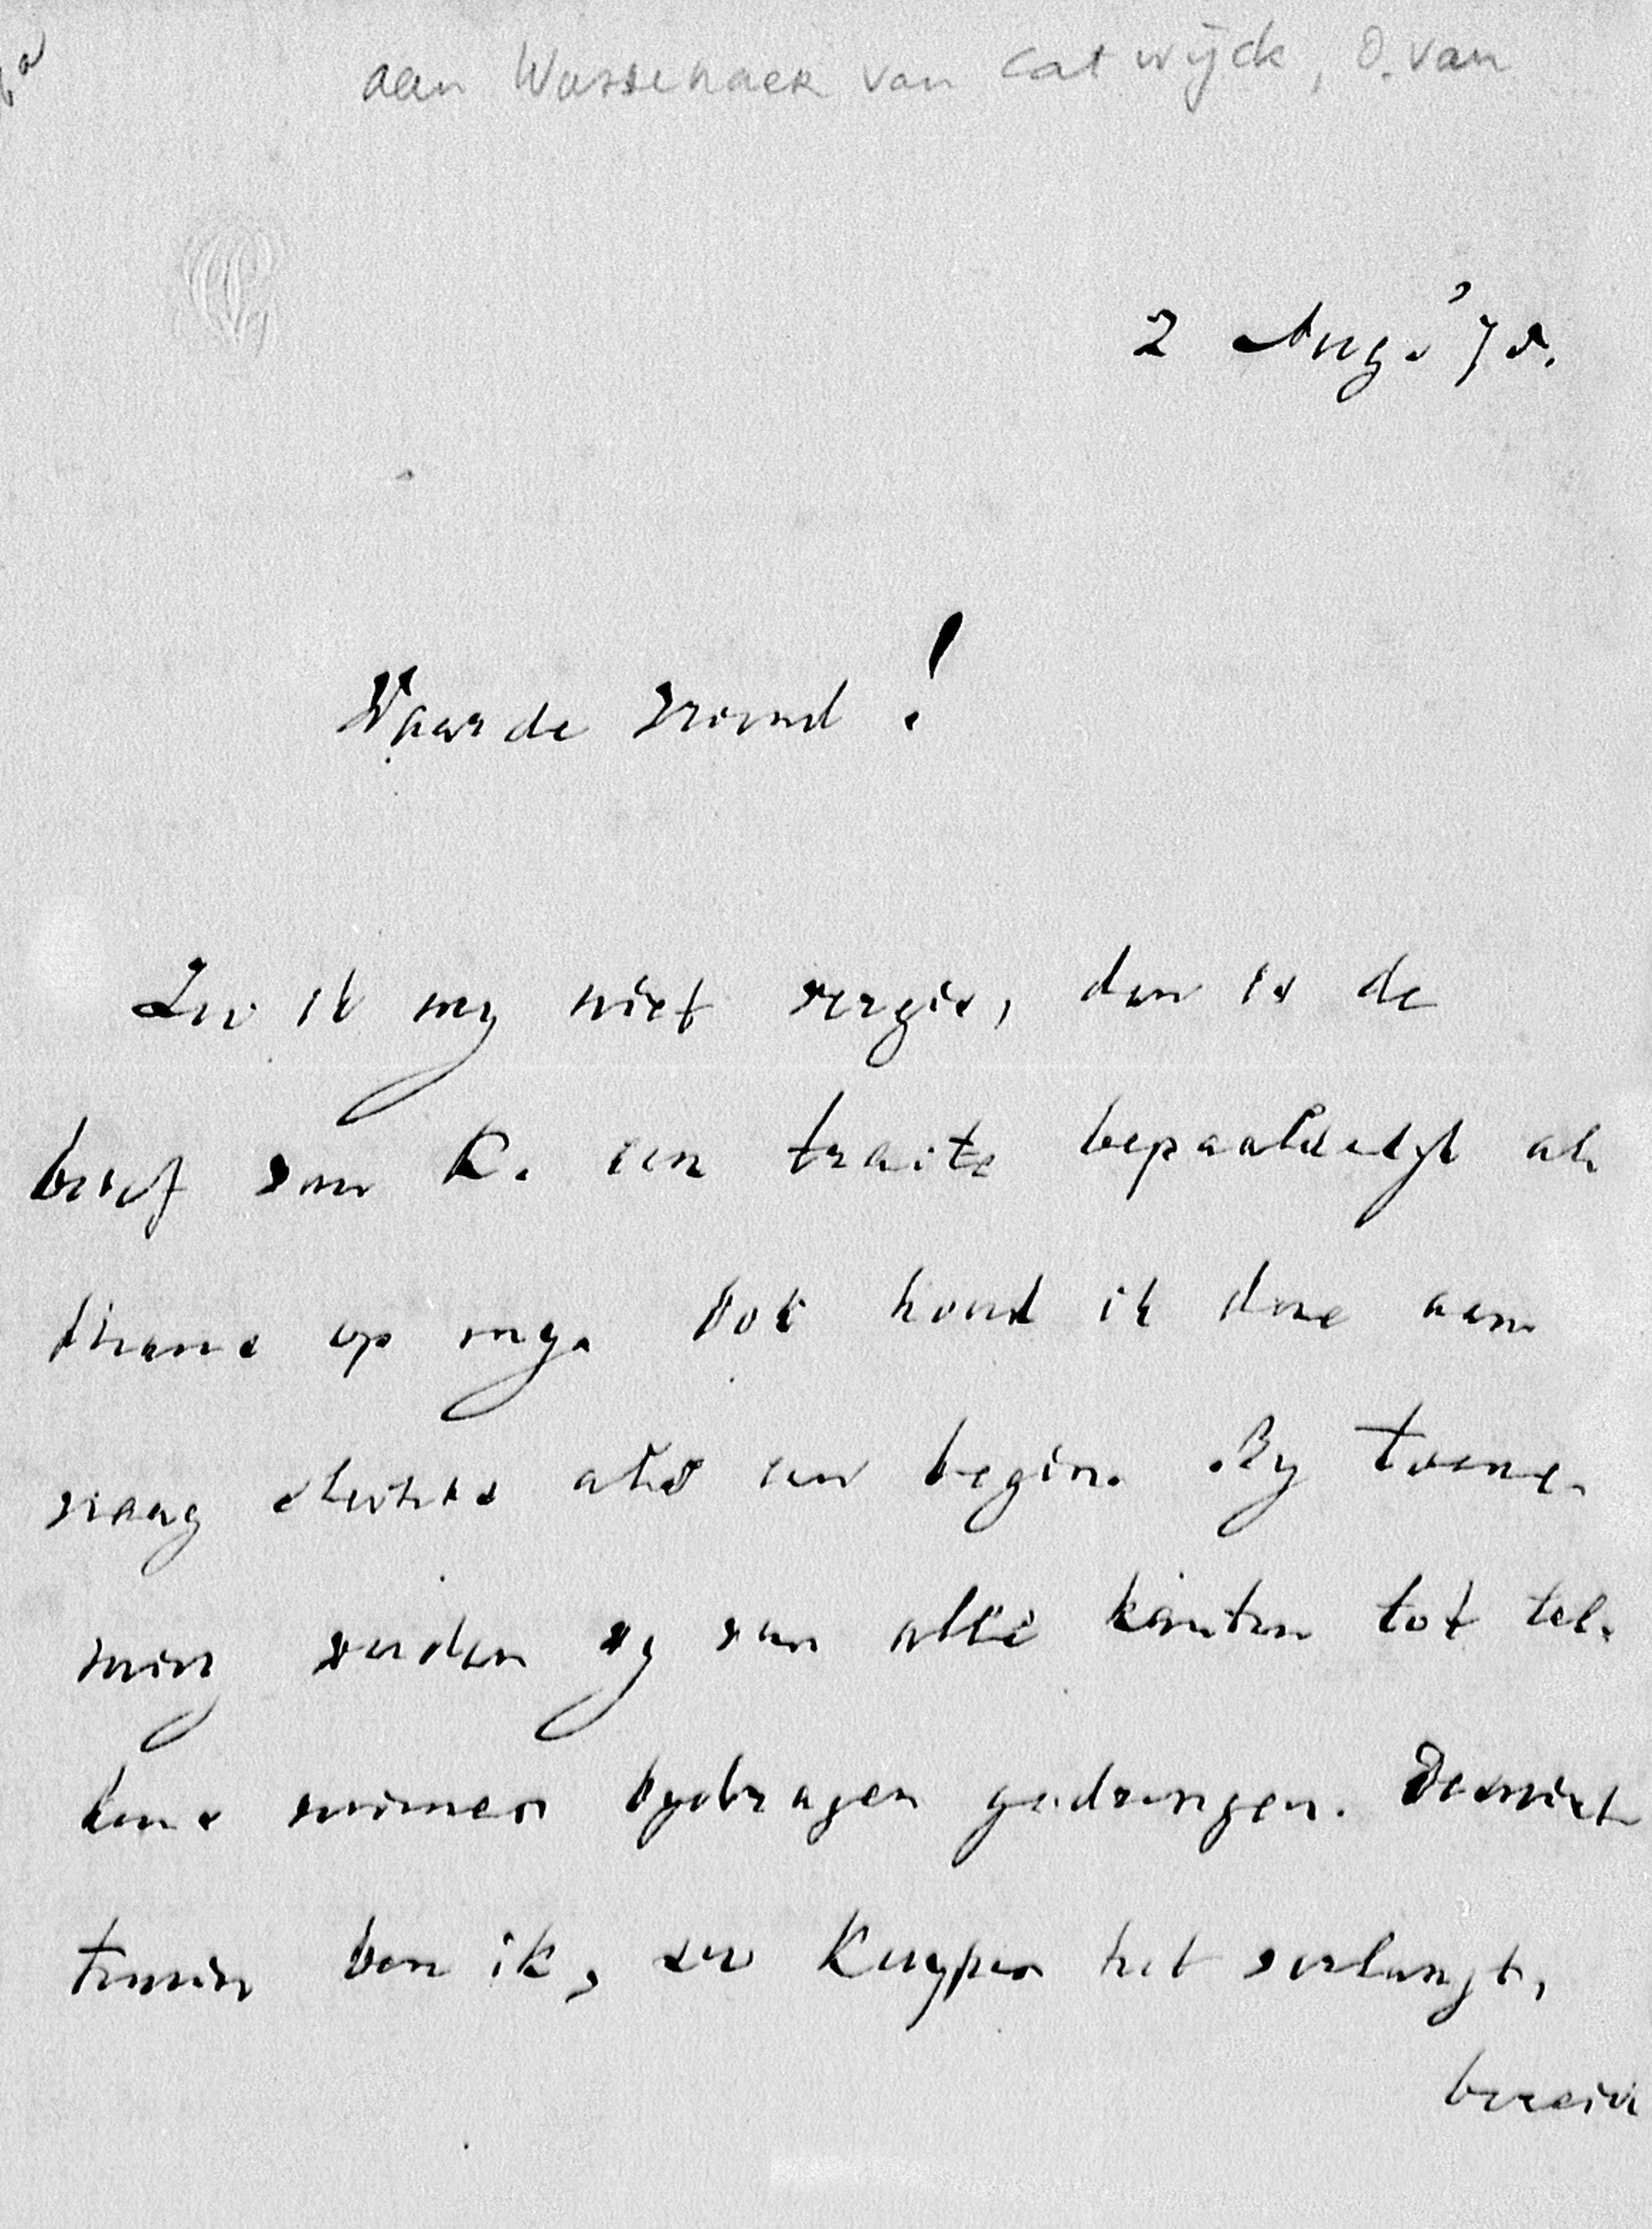 aan Wassenaer van Catwijck, O. van
2 Augs '78.
Waarde vriend!
Zoo ik my niet vergis, dan is de
brief van K. een traite bepaaldelyk als
thans op my. Ook houd ik deze aan
vraag slechts als een begin. By toene-
ming worden wy van alle kanten tot tel-
kens ruimer bydragen gedrongen. Desniet
temin ben ik, zoo Kuyper het verlangt,
bereid